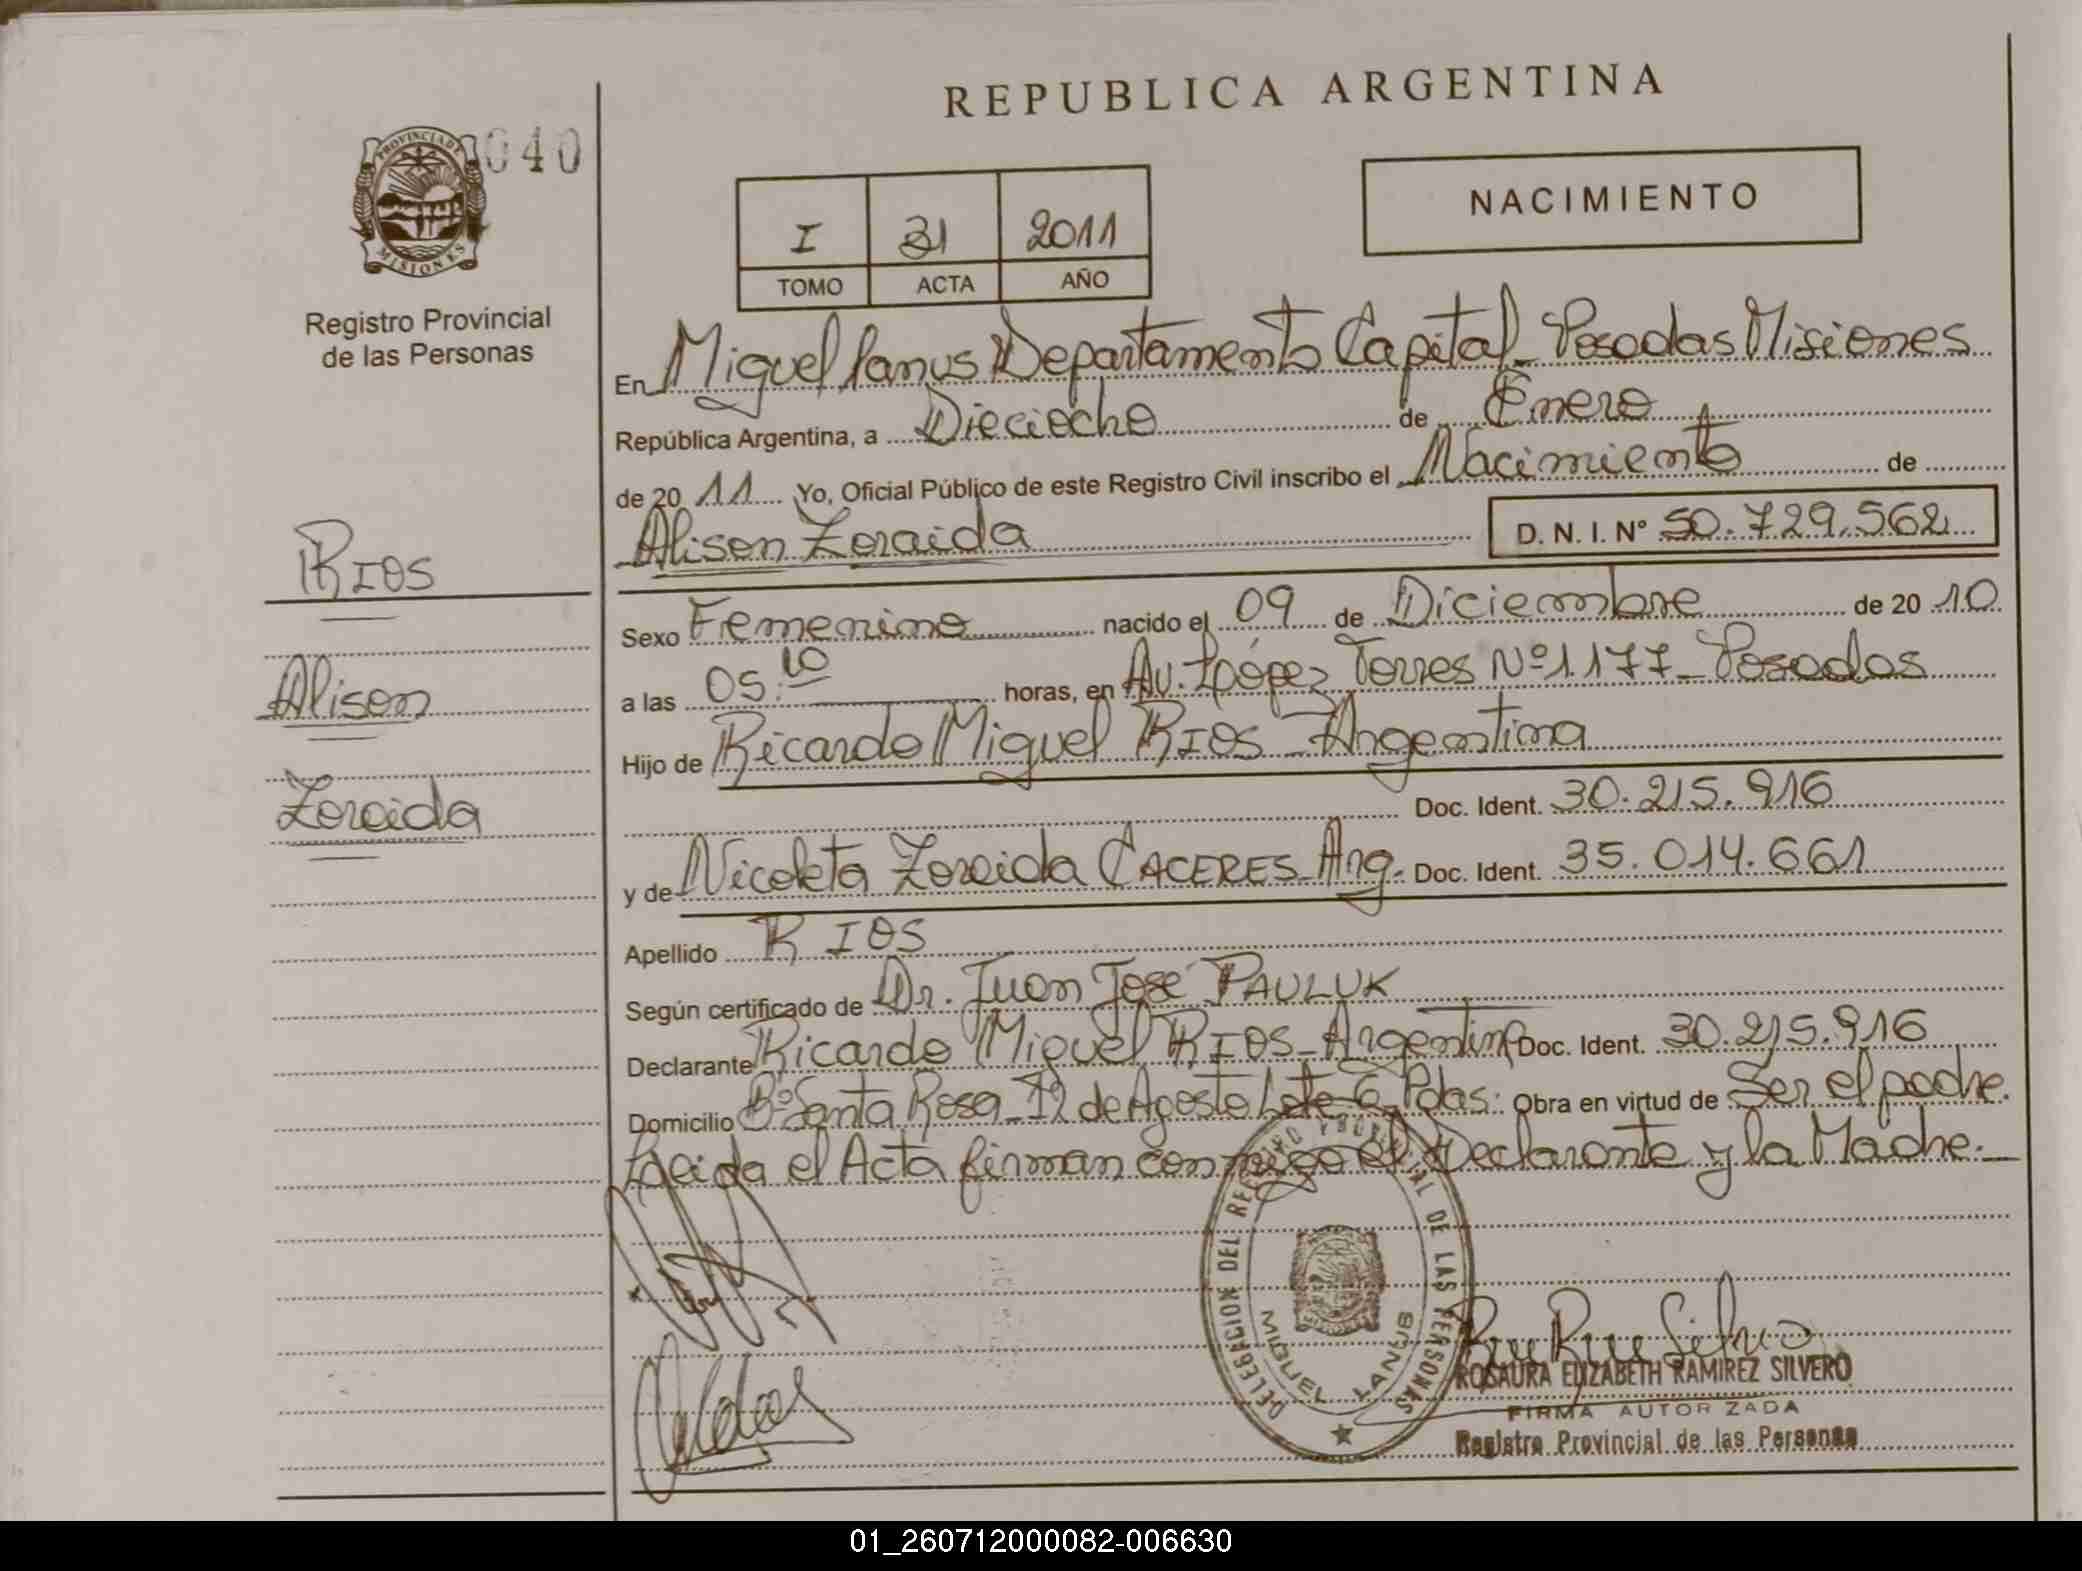 REPUBLICA ARGENTINA
PROVINCIA DE MISIONES
040
Registro Provincial
de las Personas
NACIMIENTO
I 31 2011
TOMO ACTA AÑO
En Miguel Lanus Departamento Capital - Posadas Misiones
República Argentina, a Dieciocho de Enero
de 20 11 Yo, Oficial Público de este Registro Civil inscribo el Nacimiento de
Alison Zoraida D. N. I. Nº 50.729.562
RIOS
Alison
Zoraida
Sexo Femenino nacido el 09 de Diciembre de 20 10
a las 05:10 horas, en Av. López Torres Nº 1.177 - Posadas
Hijo de Ricardo Miguel RIOS - Argentina
Doc. Ident. 30.215.916
y de Nicoleta Zoraida CACERES - Arg. Doc. Ident. 35.014.661
Apellido RIOS
Según certificado de Dr. Juan José PAULUK
Declarante Ricardo Miguel RIOS - Argentina Doc. Ident. 30.215.916
Domicilio Bº Santa Rosa - 12 de Agosto Lote 6 Pdas. Obra en virtud de Ser el padre.
Leida el Acta firman conmigo el Declarante y la Madre.
DELEGACION DEL REGISTRO PROVINCIAL DE LAS PERSONAS
MIGUEL LANUS
ROSAURA ELIZABETH RAMIREZ SILVERO
FIRMA AUTORIZADA
Registro Provincial de las Personas
01_260712000082-006630